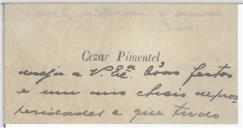 Cezar Pimentel
deseja a V. Exª. Bôas festas
e um ano cheio de pros
peridades e que tudo